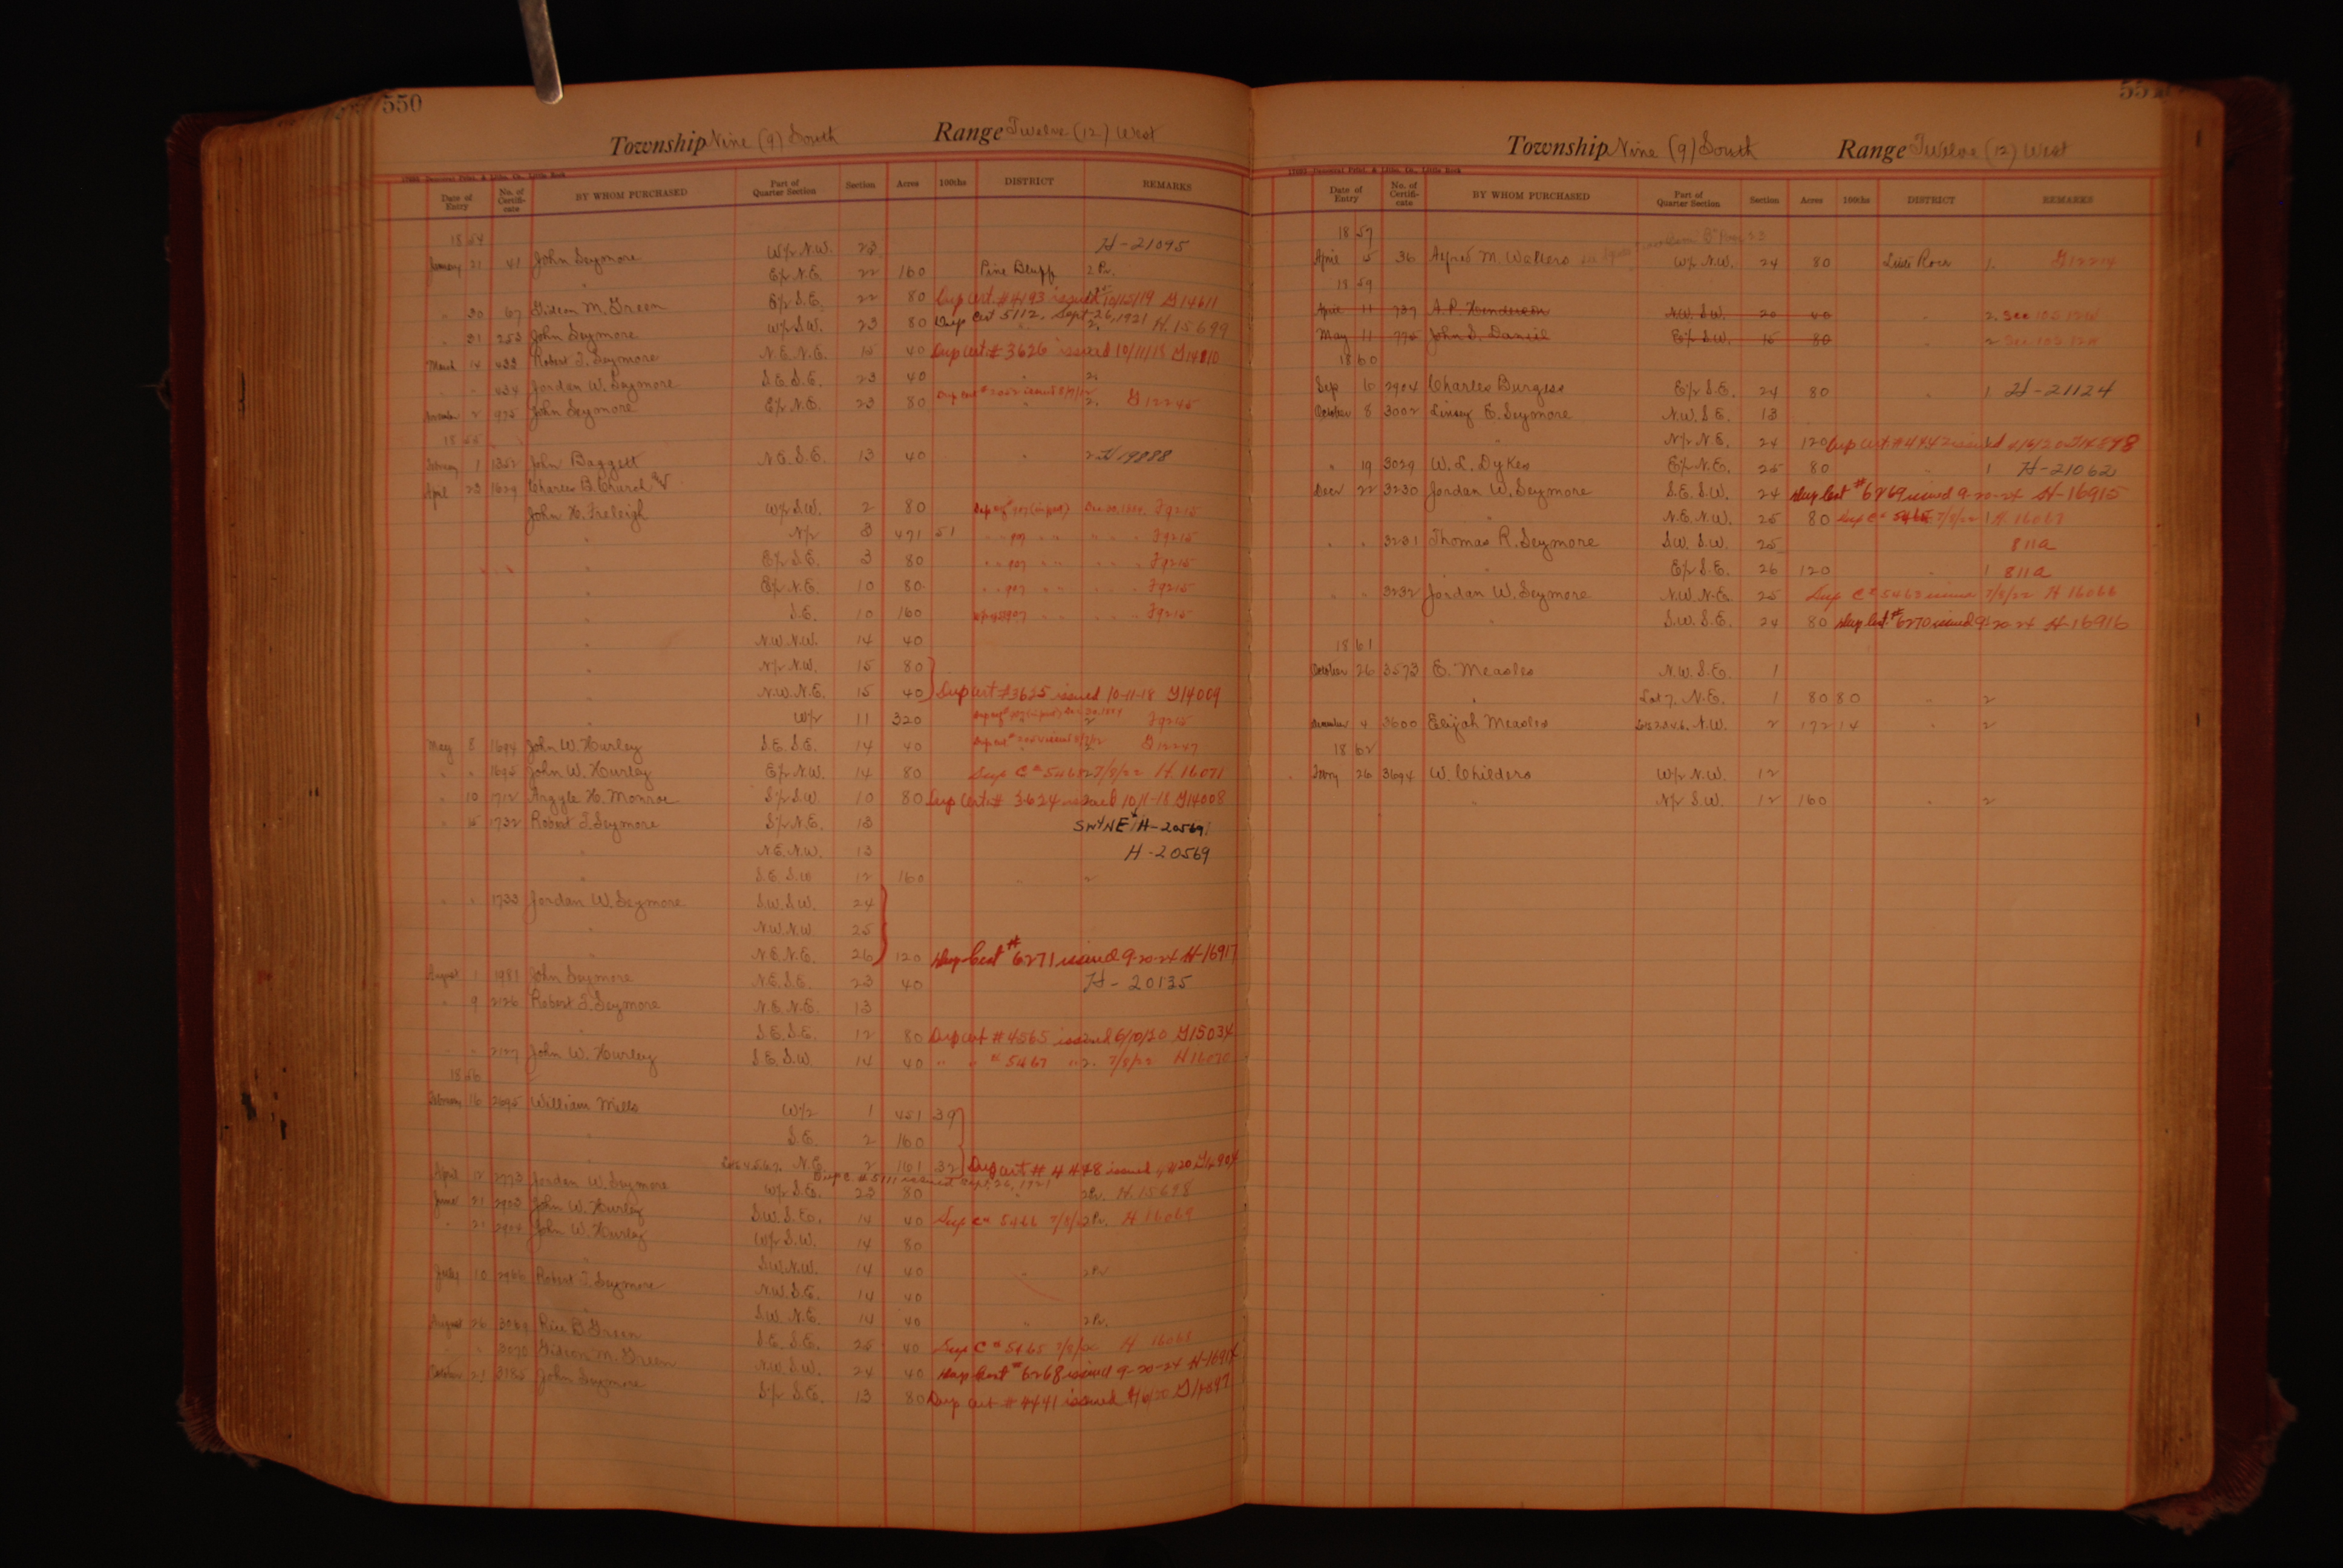 550
Township Nine (9) South Range Twelve (12) West
Date of Entry No. of Certifi-cate BY WHOM PURCHASED Part of Quarter Section Section Acres 100ths DISTRICT REMARKS
1854
January 21 41 John Seymore W/2 N.W. 23 H-21095
" E/2 N.E. 22 160 Pine Bluff 2 Pr.
" 30 67 Gideon M. Green E/2 S.E. 22 80 Dup cert #4193 issued 10/15/19 G14611
" 31 253 John Seymore W/2 S.W. 23 80 Dup Cert 5112, Sept 26, 1921 H.15699
March 14 433 Robert T. Seymore N.E. N.E. 15 40 Dup cert # 3626 issued 10/11/18 G14010
" " 434 Jordan W. Seymore S.E. S.E. 23 40 " 2.
November 2 975 John Seymore E/2 N.E. 23 80 " 2. G12245
1855
February 1 1352 John Baggett N.E. S.E. 13 40 " 2 H 19888
April 23 1629 Charles B. Church &
John H. Freleigh W/2 S.W. 2 80 F9215
" N/2 3 471 51 " " 907 " " " " " F9215
" E/2 S.E. 3 80 " " 907 " " " " " F9215
" E/2 N.E. 10 80 " " 907 " " " " " F9215
" S.E. 10 160 907 " " " " F9215
" N.W. N.W. 14 40
" N/2 N.W. 15 80
" N.W. N.E. 15 40 Dup cert #3625 issued 10-11-18 G14009
" W/2 11 320 2 F9215
May 8 1694 John W. Hurley S.E. S.E. 14 40 G12247
" " 1695 John W. Hurley E/2 N.W. 14 80 Dup C# 5468 7/8/22 H 16071
" 10 1712 Argyle H. Monroe S/2 S.W. 10 80 Dup cert # 3624 issued 10/11-18 G14008
" 15 1732 Robert T. Seymore S/2 N.E. 13 SW/NE H-20569
" N.E. N.W. 13 H-20569
" S.E. S.W 12 160 " 2
" " 1733 Jordan W. Seymore S.W. S.W. 24
" N.W. N.W. 25
" N.E. N.E. 26 120 Dup Cert # 6271 issued 9-20-24 H-16917
August 1 1981 John Seymore N.E. S.E. 23 40 H-20135
" 9 2126 Robert T. Seymore N.E. N.E. 13
" S.E. S.E. 12 80 Dup cert # 4565 issued 6/10/20 G15034
" " 2127 John W. Hurley S.E. S.W. 14 40 " " # 5467 " 2. 7/8/22 H16070
1856
February 16 2695 William Mills W/2 1 451 39
" S.E. 2 160
" N.E. 2 161 32 Dup cert # 4448 issued
Dup C # 5111 issued Sept. 26, 1921
April 12 2773 Jordan W. Seymore W/2 S.E. 23 80 " 2 Pr. H.15698
June 21 2903 John W. Hurley S.W. S.E. 14 40 Dup C# 5466 7/8/22 Pr. H 16069
" 21 2904 John W. Hurley W/2 S.W. 14 80
" S.W. N.W. 14 40 " 2 Pr
July 10 2966 Robert T. Seymore N.W. S.E. 14 40
" S.W. N.E. 14 40 " 2 Pr.
August 26 3069 Rice B. Green S.E. S.E. 25 40 Dup C# 5465 7/8/22 H 16068
" " 3070 Gideon M. Green N.W. S.W. 24 40 Dup Cert # 6268 issued 9-20-24 H-16914
October 21 3185 John Seymore S/2 S.E. 13 80 Dup cert # 4441 issued
551
Township Nine (9) South Range Twelve (12) West
Date of Entry No. of Certifi-cate BY WHOM PURCHASED Part of Quarter Section Section Acres 100ths DISTRICT REMARKS
1857
April 5 36 Alfred M. Walters W/2 N.W. 24 80 Little Rock 1. G12214
1859
April 11 737 A.P. Henderson N.W. S.W. 20 40 " 2. See 10S 12W
May 11 775 John S. Daniel E/2 S.W. 15 80 " 2 See 10S 12W
1860
Sep 10 2904 Charles Burgess E/2 S.E. 24 80 " 1. H-21124
October 8 3002 Linsey E. Seymore N.W. S.E. 13
" N/2 N.E. 24 120 Dup cert #4442 issued G14898
" 19 3029 W. L. Dykes E/2 N.E. 25 80 " 1 H-21062
Decr 22 3230 Jordan W. Seymore S.E. S.W. 24 Dup Cert # 6269 issued 9-20-24 H-16915
" N.E. N.W. 25 80 Dup C# 5465 7/8/22 1 H 16068
" " 3231 Thomas R. Seymore S.W. S.W. 25 811a
" E/2 S.E. 26 120 " 1 811a
" " 3232 Jordan W. Seymore N.W. N.E. 25 Dup C# 5463 issued 7/8/22 H 16066
" S.W. S.E. 24 80 Dup Cert # 6270 issued 9-20-24 H-16916
1861
October 26 3573 E. Measles N.W. S.E. 1
" Lot 7. N.E. 1 80 80 " 2
December 4 3600 Elijah Measles N.W. 2 172 14 " 2
1862
26 3694 W. Childers W/2 N.W. 12
" N/2 S.W. 12 160 " 2